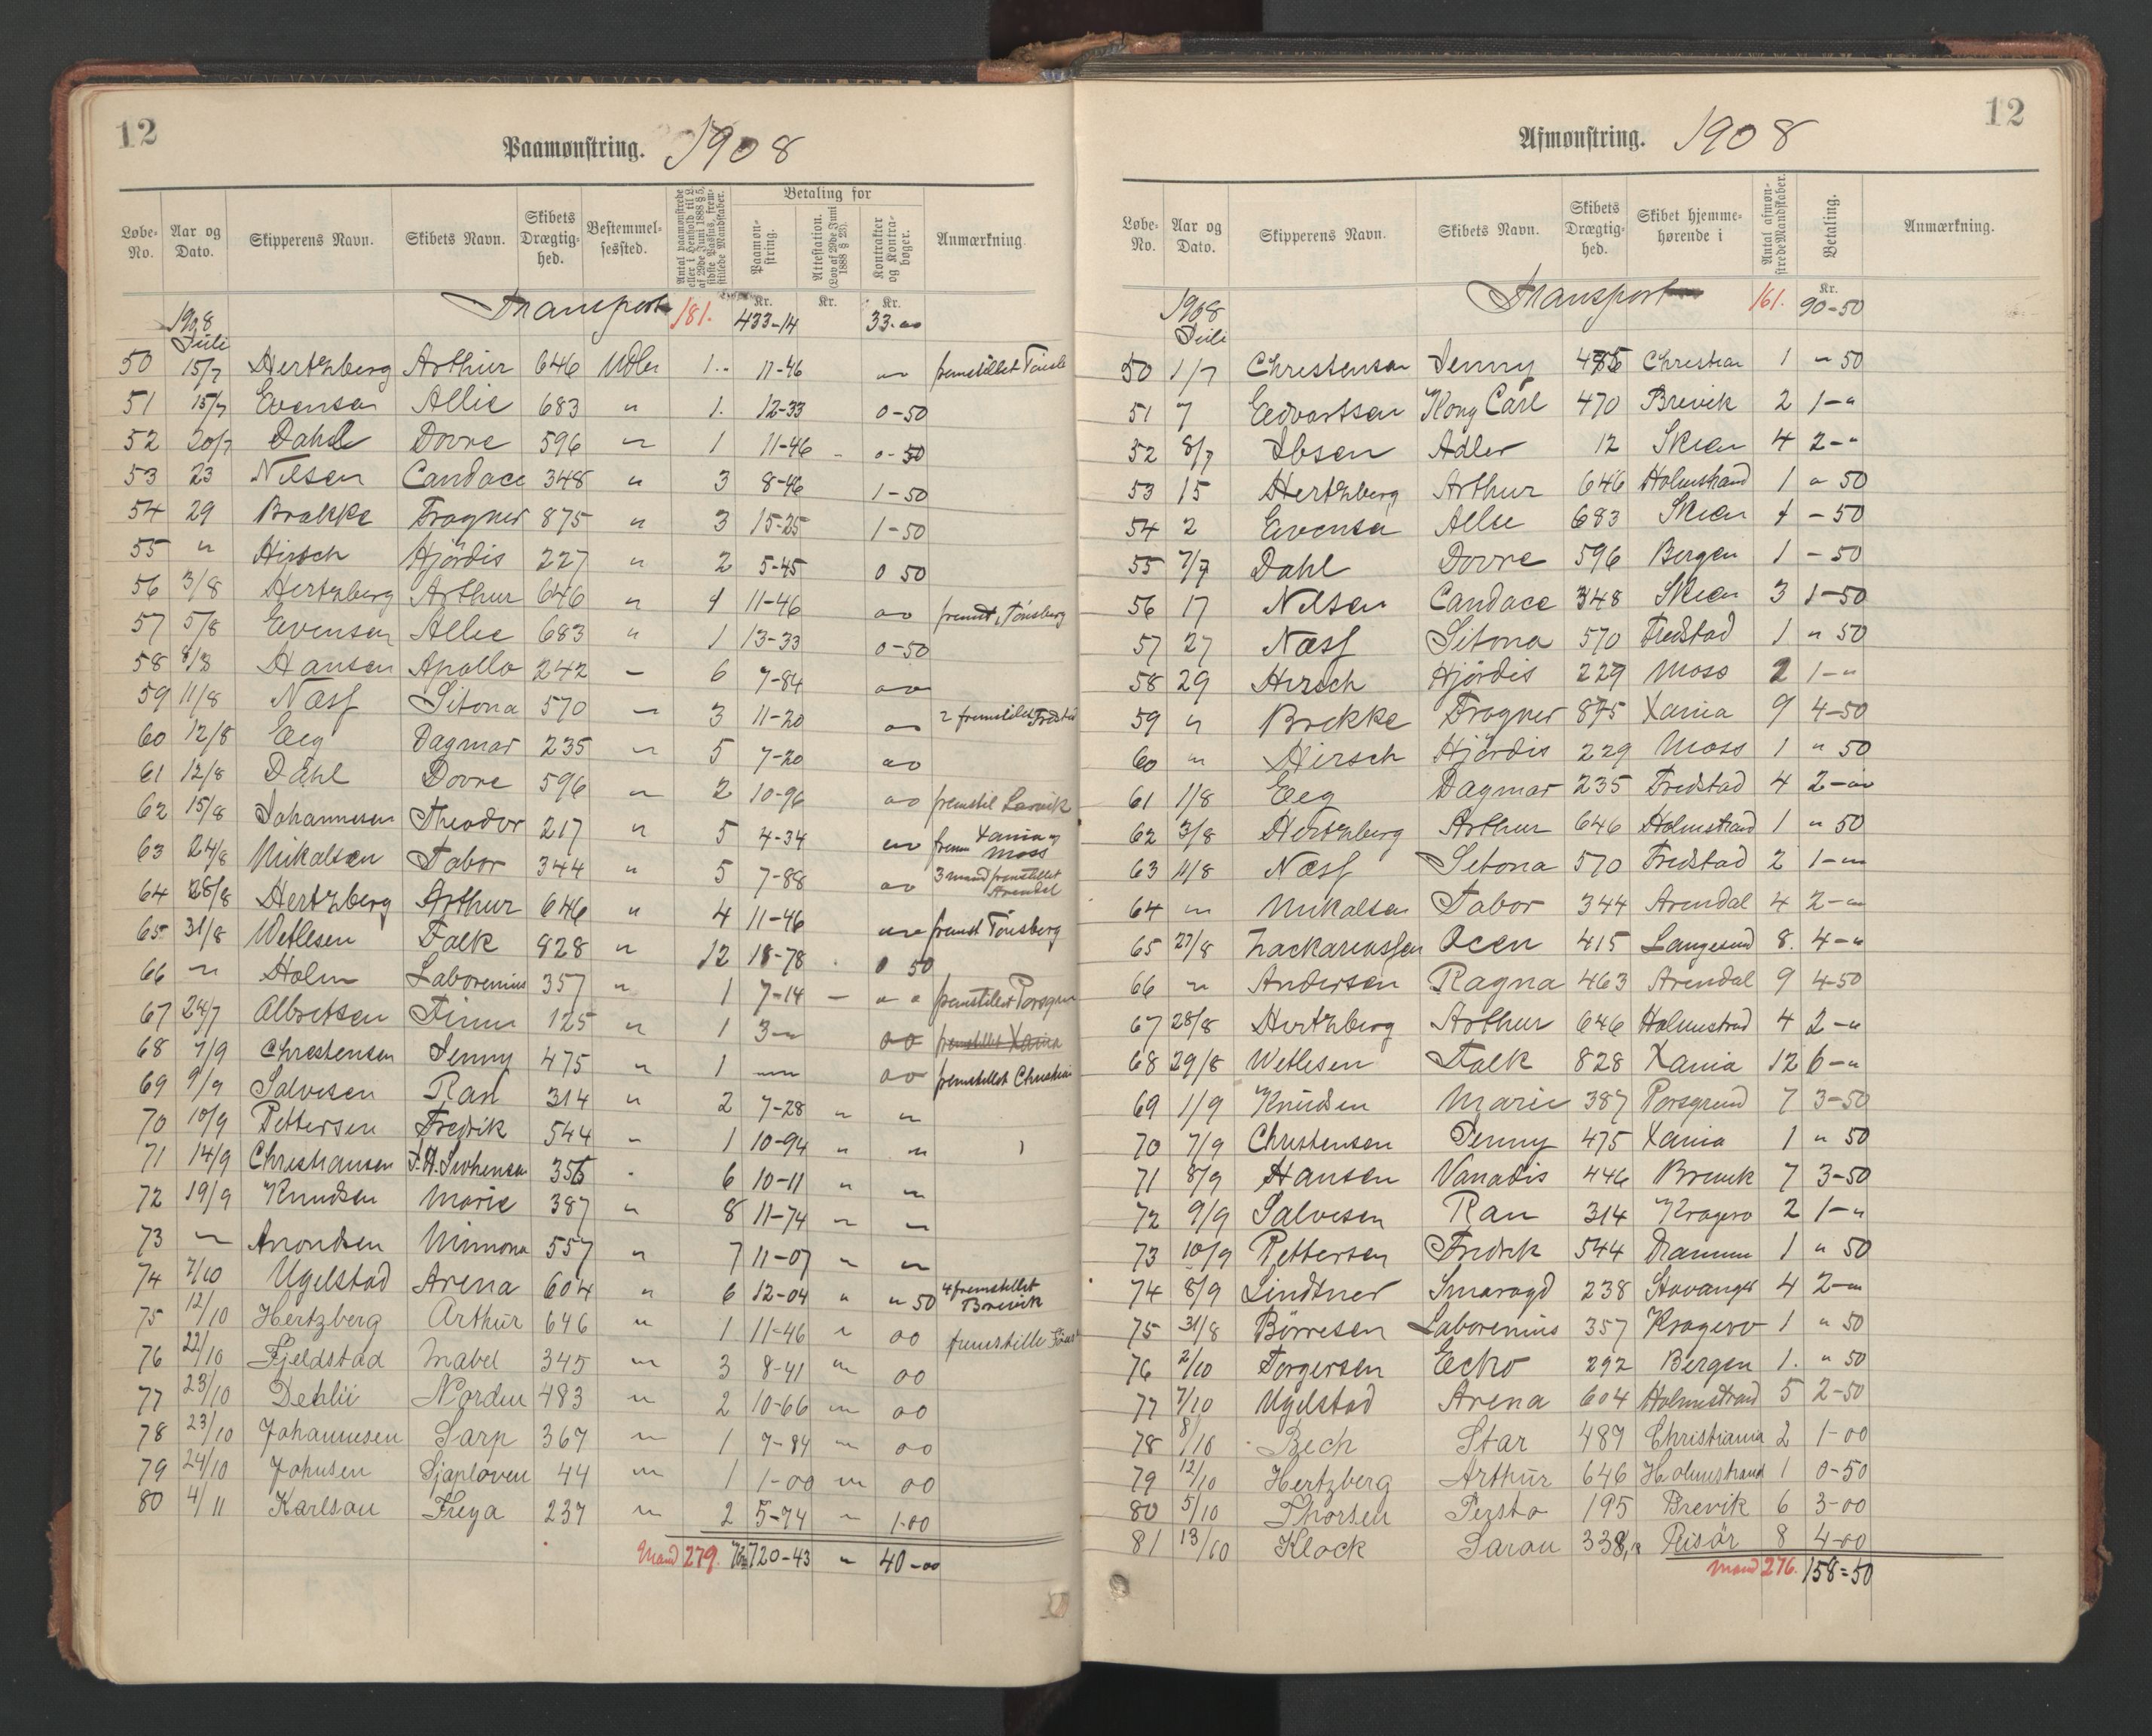 12
Paamønstring. 1908
Løbe-No. Aar og Dato. Skipperens Navn. Skibets Navn. Skibets Drægtig-hed. Bestemmel-sessted. Antal paamønstrede eller i Henhold til L. af 29de Juni 1888 § 5, sidste Passus, frem-stillede Mandskaber. Betaling for Paamøn-string. Attestation. (Lov af 29de Juni 1888 § 23). Kontrakter og Kontra-bøger. Anmærkning.
Kr. Kr. Kr.
1908 Transport 181. 433-14 33.00
Juli
50 15/7 Hertzberg Arthur 646 Udler 1 11-46 " fremstillet
51 15/7 Evensen Allie 683 " 1. 12-33 0-50
52 20/7 Dahl Dovre 596 " 1 11-46 - 0-50
53 23 Nilsen Candace 348 " 3 8-46 1-50
54 29 Brekke Frogner 875 " 3 15-25 1-50
55 " Hirsch Hjördis 227 " 2 5-45 0 50
56 3/8 Hertzberg Arthur 646 " 1 11-46 00 fremst, Tönsberg
57 5/8 Evensen Allie 683 " 1 13-33 0-50
58 8/8 Hansen Apollo 242 - 6 7-84 00
59 11/8 Næss Sitona 570 - 3 11-20 00 2 fremstillet Fredstad
60 12/8 Eeg Dagmar 235 " 5 7-20 00
61 12/8 Dahl Dovre 596 " 2 10-96 00 fremstil Larvik
62 15/8 Johannesen Theodor 217 " 5 4-34 " frem Xania og Moss
63 24/8 Mikalsen Tabor 344 " 5 7-88 00 3 mand fremstillet Arendal
64 28/8 Hertzberg Arthur 646 " 4 11-46 " fremst Tönsberg
65 31/8 Wetlesen Falk 828 " 12 18-78 . 0 50
66 " Holm Laborenius 357 " 1 7-14 - " " fremstillet Porsgrun
67 24/7 Albretsen Finn 125 " 1 3-" 00 fremstillet Xania
68 7/9 Christensen Jenny 475 " 1 " 00 fremstillet Christia
69 9/9 Salvesen Ran 314 " 2 7-28 " "
70 10/9 Pettersen Fredrik 544 " 1 10-94 " "
71 14/9 Christiansen 356 . 6 10-11 " "
72 19/9 Knudsen Marie 387 " 8 11-74 " "
73 " Anondsen Mimona 557 " 7 11-07 " "
74 7/10 Ugelstad Arena 604 " 6 12-04 " " 50 4 fremstillet Brevik
75 12/10 Hertzberg Arthur 646 " 1 11-46 " 00 fremstille
76 22/10 Fjeldstad Mabel 345 " 3 8-41 " 00
77 23/10 Dehlii Norden 483 " 2 10-66 " 00
78 23/10 Johannesen Sarp 367 " 1 9-84 " 00
79 24/10 Johnsen Sjapløven 44 " 1 1-00 " 00
80 4/11 Karlson Freya 237 " 2 5-74 " 1.00
Mand 279. 720-43 " 40-00
12
Afmønstring. 1908
Løbe-No. Aar og Dato. Skipperens Navn. Skibets Navn. Skibets Drægtig-hed. Skibet hjemme-hørende i Antal afmøn-strede Mandskaber. Betaling. Anmærkning.
Kr.
1908 Transport 161. 90-50
Juli
50 1/7 Christensen Jenny 475 Christian 1 " 50
51 7 Eedvartsen Kong Carl 470 Brevik 2 1-"
52 8/7 Ibsen Adler 12 Skien 4 2-"
53 15 Hertzberg Arthur 646 Holmestrand 1 " 50
54 2 Evensen Allie 683 Skien 1 - 50
55 7/7 Dahl Dovre 596 Bergen 1 - 50
56 17 Nilsen Candace 348 Skien 3 1-50
57 27 Næss Sitona 570 Fredstad 1 " 50
58 29 Hirsch Hjördis 229 Moss 2 1-"
59 " Brekke Frogner 875 Xania 9 4-50
60 " Hirsch Hjördis 229 Moss 1 " 50
61 1/8 Eeg Dagmar 235 Fredstad 4 2-"
62 3/8 Hertzberg Arthur 646 Holmestrand 1 " 50
63 11/8 Næss Sitona 570 Fredstad 2 1-"
64 " Mikalsen Tabor 344 Arendal 4 2-"
65 27/8 Zackariassen Ocen 415 Langesund 8. 4-"
66 " Andersen Ragna 463 Arendal 9 4-50
67 28/8 Hertzberg Arthur 646 Holmestrad 4 2-"
68 29/8 Wetlesen Falk 828 Xania 12 6-"
69 1/9 Knudsen Marie 387 Porsgrund 7 3-50
70 7/9 Christensen Jenny 475 Xania 1 " 50
71 8/9 Hansen Vanadis 446 Brevik 7 3-50
72 9/9 Salvesen Ran 314 Kragero 2 1-"
73 10/9 Pettersen Fredrik 544 Drammen 1 " 50
74 8/9 Lindtner Smaragd 238 Stavanger 4 2-"
75 31/8 Börresen Laborenius 357 Kragero 1 " 50
76 2/10 Torgersen Echo 292 Bergen 1. " 50
77 7/10 Ugelstad Arena 604 Holmestrand 5 2-50
78 8/10 Bech Star 489 Christiania 2 1-00
79 12/10 Hertzberg Arthur 646 Holmestrand 1 0-50
80 5/10 Thorsen Persto 195 Brevik 6 3-00
81 13/10 Klock Saron 338 Risör 8 4-00
Mand 276. 158=50